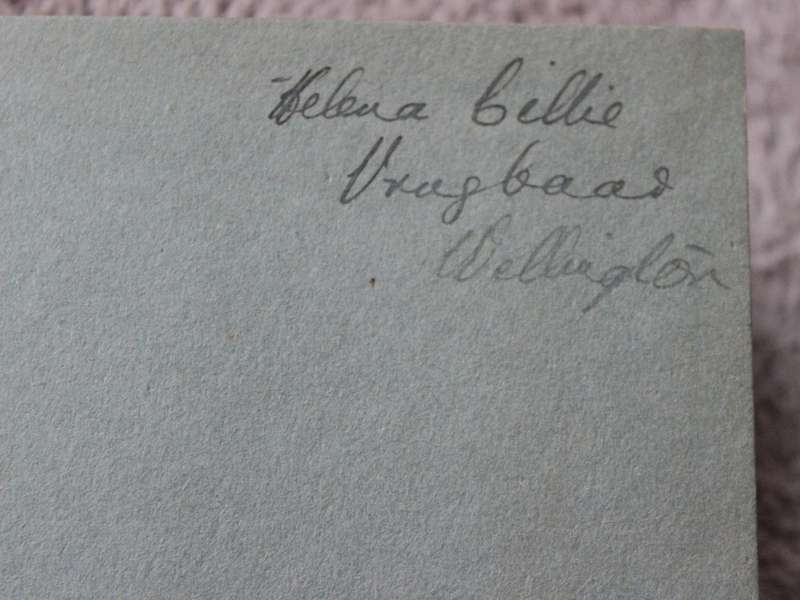 Helena Cillie
Vrugbaar
Wellington